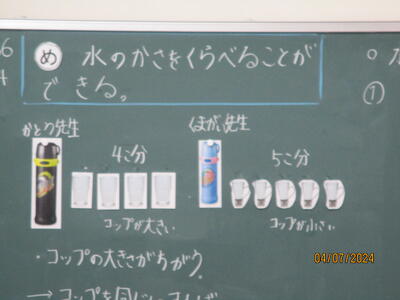 め 水のかさをくらべることが
できる。
かとう先生
4こ分
コップが大きい
くまがい先生
5こ分
コップが小さい
・コップの大きさがちがう。
→コップを同じに
①
04/07/2024